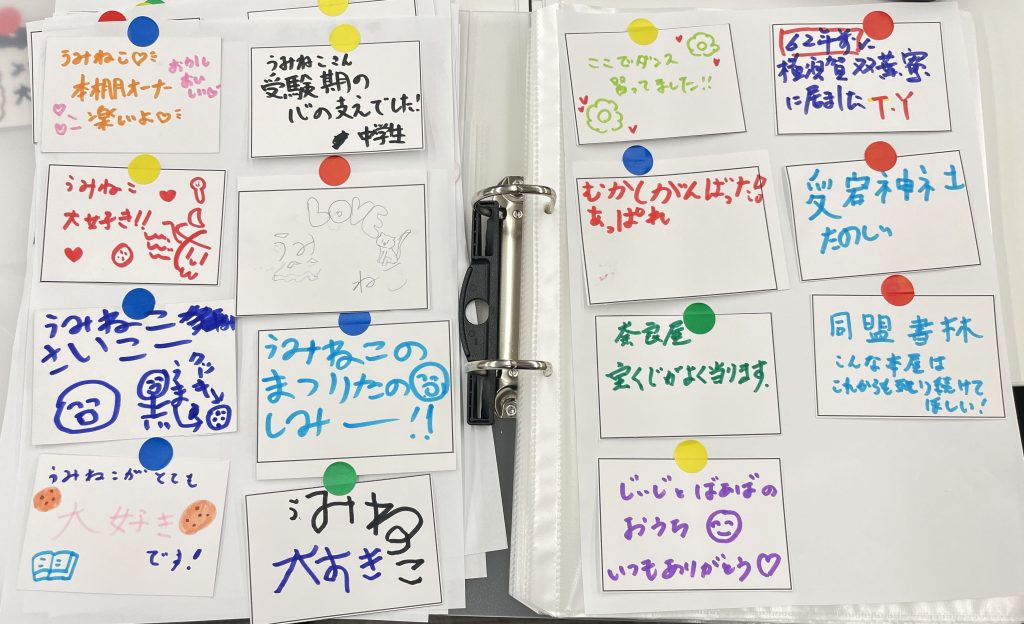 うみねこ♡
おかし
おい
しい♡
本棚オーナー
楽しいよ♡
うみねこさん
受験期の
心の支えでした!
中学生
うみねこ
大好き!!
LOVE
うみ
ねこ
うみねこ
さいこー
うみねこの
まつりたの
しみー!!
うみねこがとても
大好き
です!
うみね
大すきこ
ここでダンス
習ってました!!
62年前に
横須賀双葉寮
に居ました T.Y
むかしがんばった!
あっぱれ
愛宕神社
たのしい
奈良屋
宝くじがよく当ります.
同盟書林
こんな本屋は
これからも残り続けて
ほしい!
じぃじとばぁばの
おうち
いつもありがとう♡